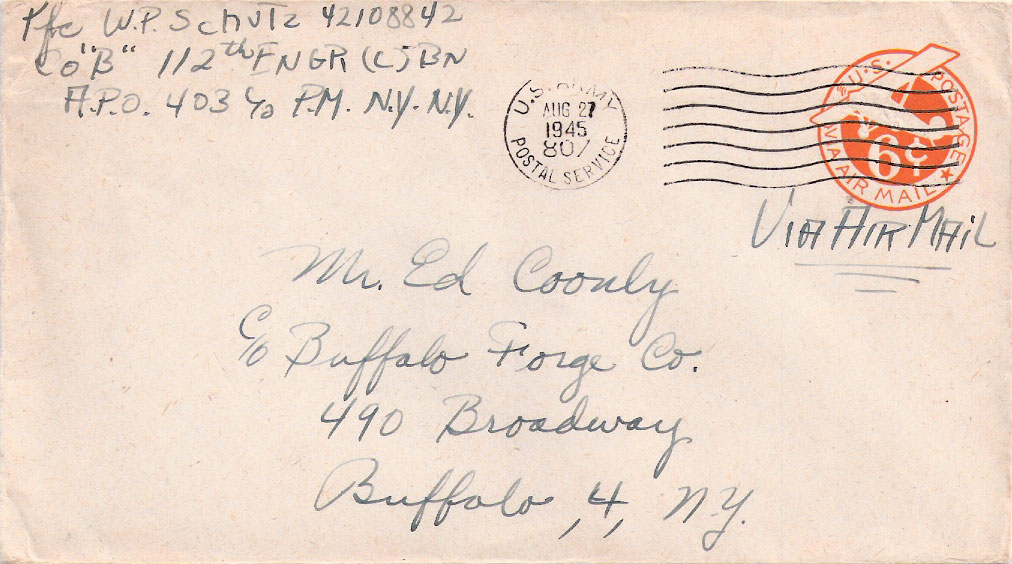 Pfc W.P. Schutz 42108842
Co "B" 112th ENGR (C) BN
A.P.O. 403 c/o P.M. N.Y. N.Y.
U.S. ARMY
AUG 27
1945
807
POSTAL SERVICE
U.S. POSTAGE
6¢
VIA AIR MAIL
Via Air Mail
Mr. Ed Coonly
c/o Buffalo Forge Co.
490 Broadway
Buffalo, 4, N.Y.